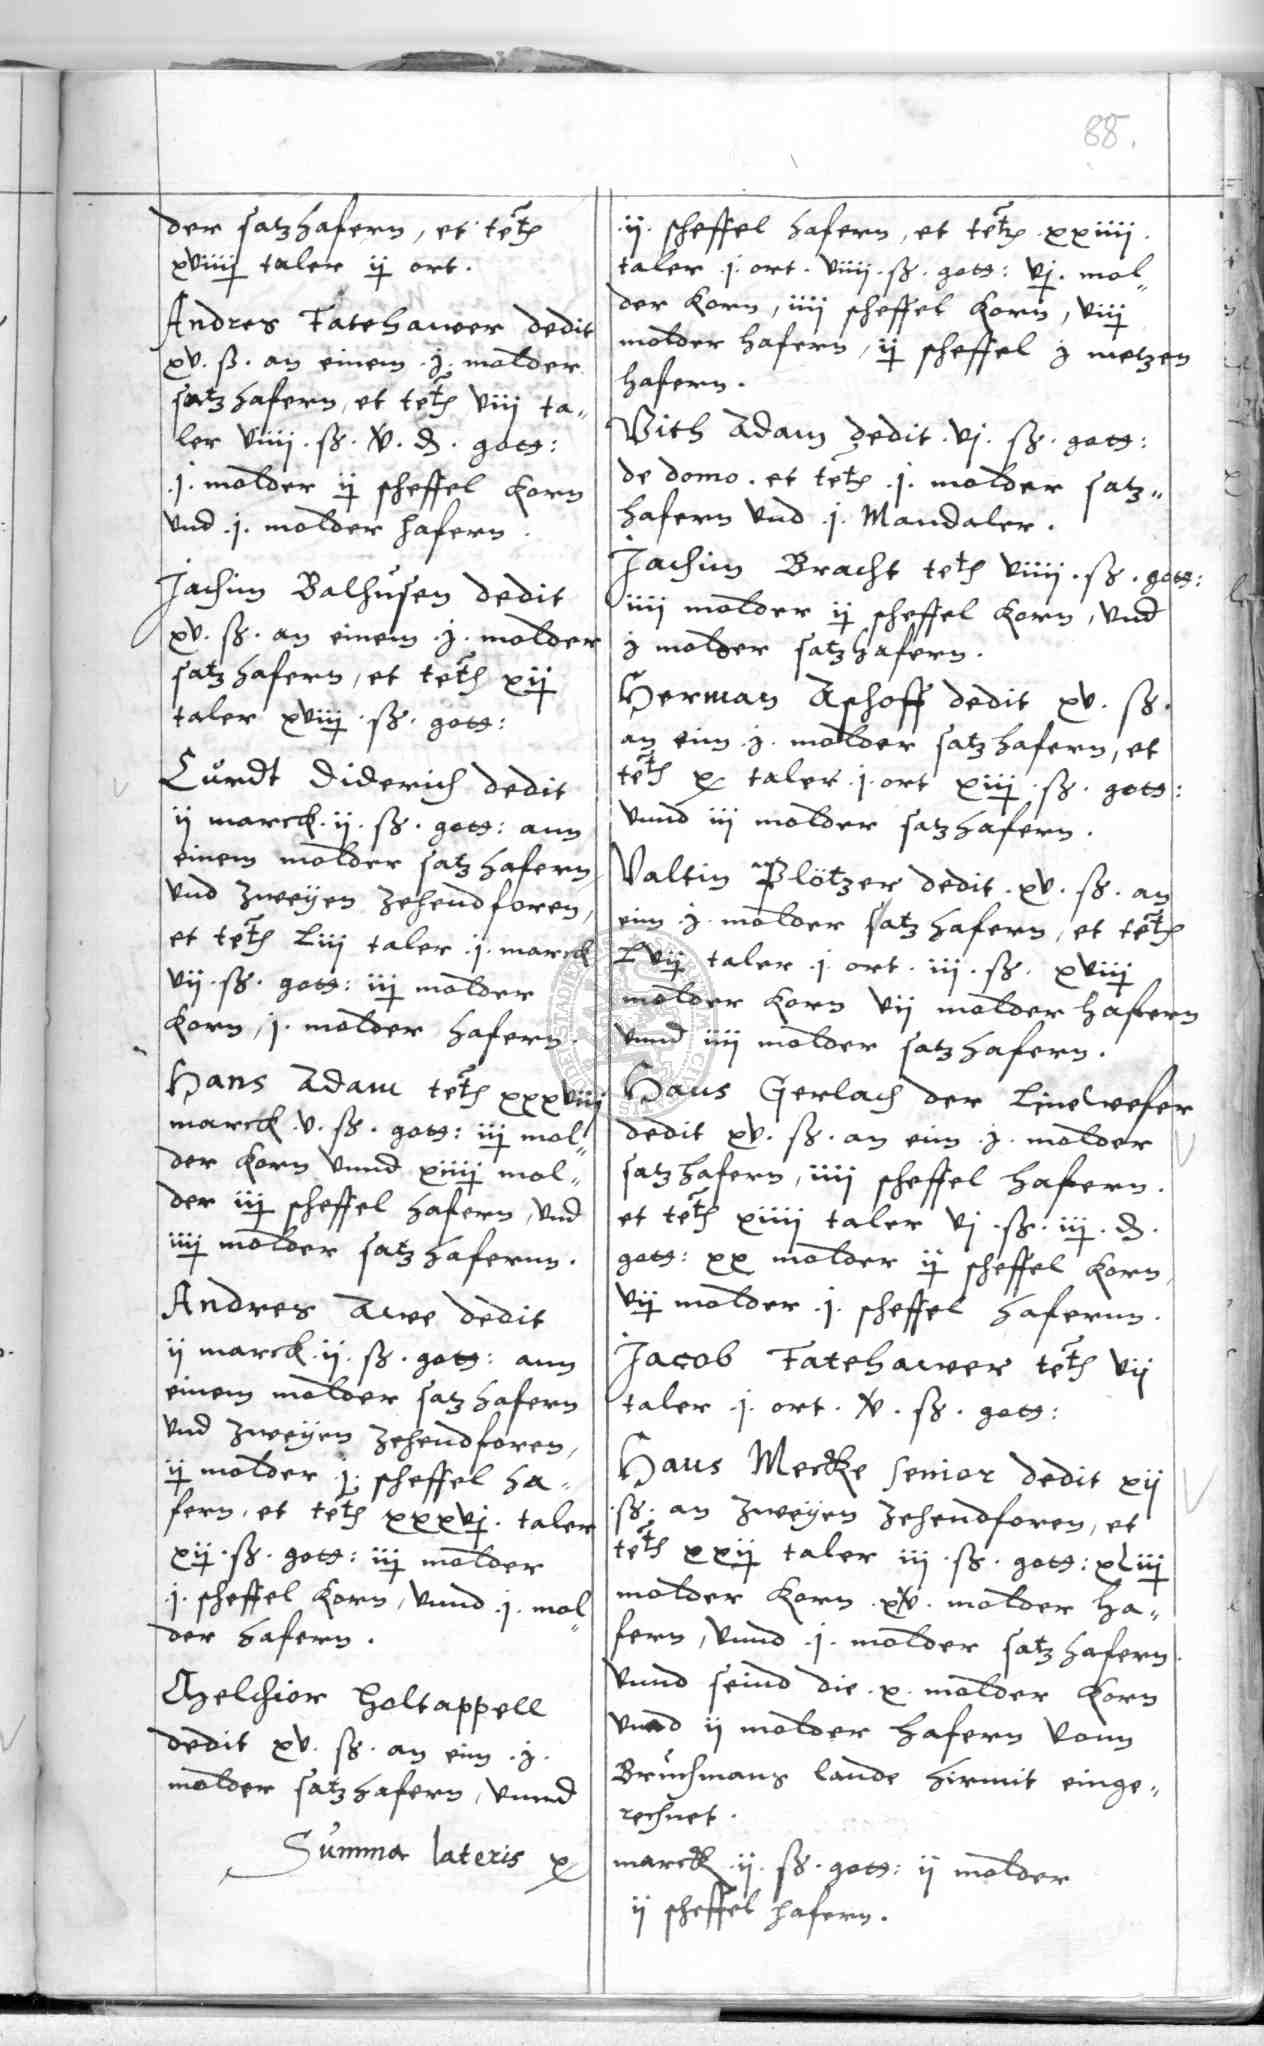 88.
der satzhafern, et tetch
xviiij taler ij ort.
Andres Fatehawer dedit
xv. ß. an einem .j. molder
satzhafern, et tetch viij ta„
ler viiij. ß. v. ₰. gots:
.j. molder ij scheffel Korn
vnd .j. molder hafern.
Jachim Balhusen dedit
xv. ß. an einem .j. molder
satzhafern, et tetch xij
taler xviij. ß. gots:
Curdt Diderich dedit
ij marck. ij. ß. gots: ann
einem molder satzhafern,
vnd zweyen zehendforen,
et tetch Liij taler .j. marck
vij. ß. gots: iij molder
Korn, j. molder hafern.
Hans Adam tetch xxxviij
marck .v. ß. gots: iij mol„
der Korn vnnd xiiij mol„
der iij scheffel hafern, vnd
iiij molder satzhafernn.
Andres Awe dedit
ij marck. ij. ß. gots: ann
einem molder satzhafern
vnd zweyen zehendforen,
ij molder j. scheffel ha„
fern, et tetch xxxvj. taler
xij. ß. gots: iij molder
.j. scheffel Korn, vnnd .j. mol„
der hafern.
Melchior Holtappell
dedit xv. ß. an eim .j.
molder satzhafern, vnnd
Summa lateris x
.ij. scheffel hafern, et tetch xxiiij.
taler .j. ort. viiij. ß. gots: vj. mol„
der Korn, iiij scheffel Korn, viij
molder hafern, ij scheffel j metzen
hafern.
Vith Adam dedit. vj. ß. gots:
de domo. et tetch .j. molder satz„
hafern vnd .j. Mandaler.
Jachim Bracht tetch viiij. ß. gots:
iiij molder ij scheffel Korn, vnd
j molder satzhafern.
Herman Aschoff dedit xv. ß.
an eim .j. molder satzhafern, et
tetch x taler .j. ort xiij. ß. gots:
vnnd iij molder satzhafern.
Valtin Plötzer dedit. xv. ß. an
eim .j. molder satzhafern, et tetch
Lvij taler .j. ort. iij. ß. xviij
molder Korn vij molder hafern
vnnd iiij molder satzhafern.
Hans Gerlach der Linewefer
dedit xv. ß. an eim .j. molder
satzhafern, iiij scheffel hafern.
et tetch xiiij taler vj. ß. iij. ₰.
gots: xx molder ij scheffel Korn,
vij molder .j. scheffel hafernn.
Jacob Fatehawer tetch vij
taler .j. ort. v. ß. gots:
Hans Mecke senior dedit xij
.ß. an zweyen zehendforen, et
tetch xxij taler iij. ß. gots: xLiij
molder Korn .xv. molder ha„
fern, vnnd .j. molder satzhafern.
vnnd seind die .x. molder Korn
vnnd ij molder hafern vonn
Bruchmans lande hirmit einge„
rechnet.
marck .ij. ß. gots: ij molder
ij scheffel hafern.